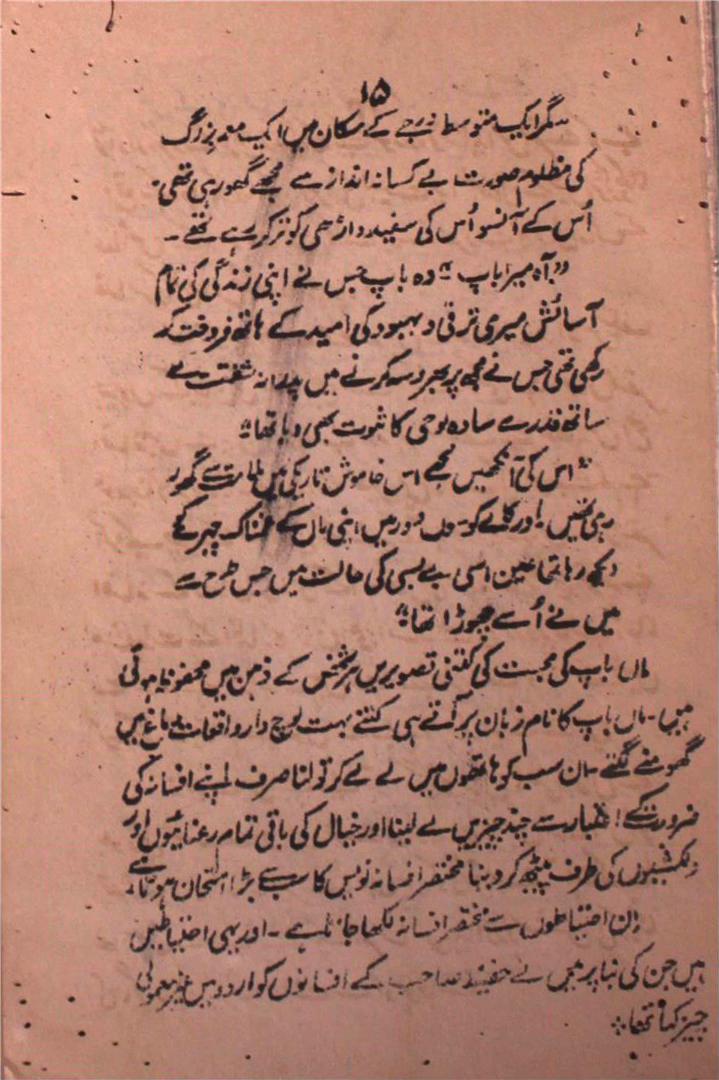 ۱۵
"مگر ایک متوسط درجے کے مکان میں ایک معمر بزرگ
کی مظلوم صورت بے کسانہ انداز سے مجھے گھور رہی تھی۔
اُس کے آنسو اُس کی سفید داڑھی کو تر کر رہے تھے۔
"آہ میرا باپ" وہ باپ جس نے اپنی زندگی کی تمام
آسائش میری ترقی و بہبود کی امید کے ہاتھ فروخت کر
رکھی تھی جس نے مجھ پر بھروسہ کرنے میں پدرانہ شفقت کے
ساتھ قدرے سادہ لوحی کا ثبوت بھی دیا تھا"
"اس کی آنکھیں مجھے اس خاموش تاریکی میں ملامت سے گھور
رہی تھیں! اور کالے کوسوں دور میں اپنی ماں کے غمناک چہرے کو
دیکھ رہا تھا عین اسی بے بسی کی حالت میں جس طرح سے
میں نے اُسے چھوڑا تھا"
ماں باپ کی محبت کی کتنی تصویریں ہر شخص کے ذہن میں محفوظ ہوتی
ہیں۔ ماں باپ کا نام زبان پر آتے ہی کتنے بہت لوچ دار واقعات دماغ میں
گھومنے لگتے۔ ان سب کو ہاتھوں میں لے لے کر تولنا صرف اپنے افسانہ کی
ضرورت کے اعتبار سے چند چیزیں لے لینا اور خیال کی باقی تمام رعنائیوں اور
دلکشیوں کی طرف پیٹھ کر دینا مختصر افسانہ نویس کا سب سے بڑا امتحان ہوتا ہے۔
اِن احتیاطوں سے مختصر افسانہ لکھا جاتا ہے۔ اور یہی احتیاطیں
ہیں جن کی بنا پر میں نے حفیظ صاحب کے افسانوں کو اردو میں غیر معمولی
چیز کہا تھا۔